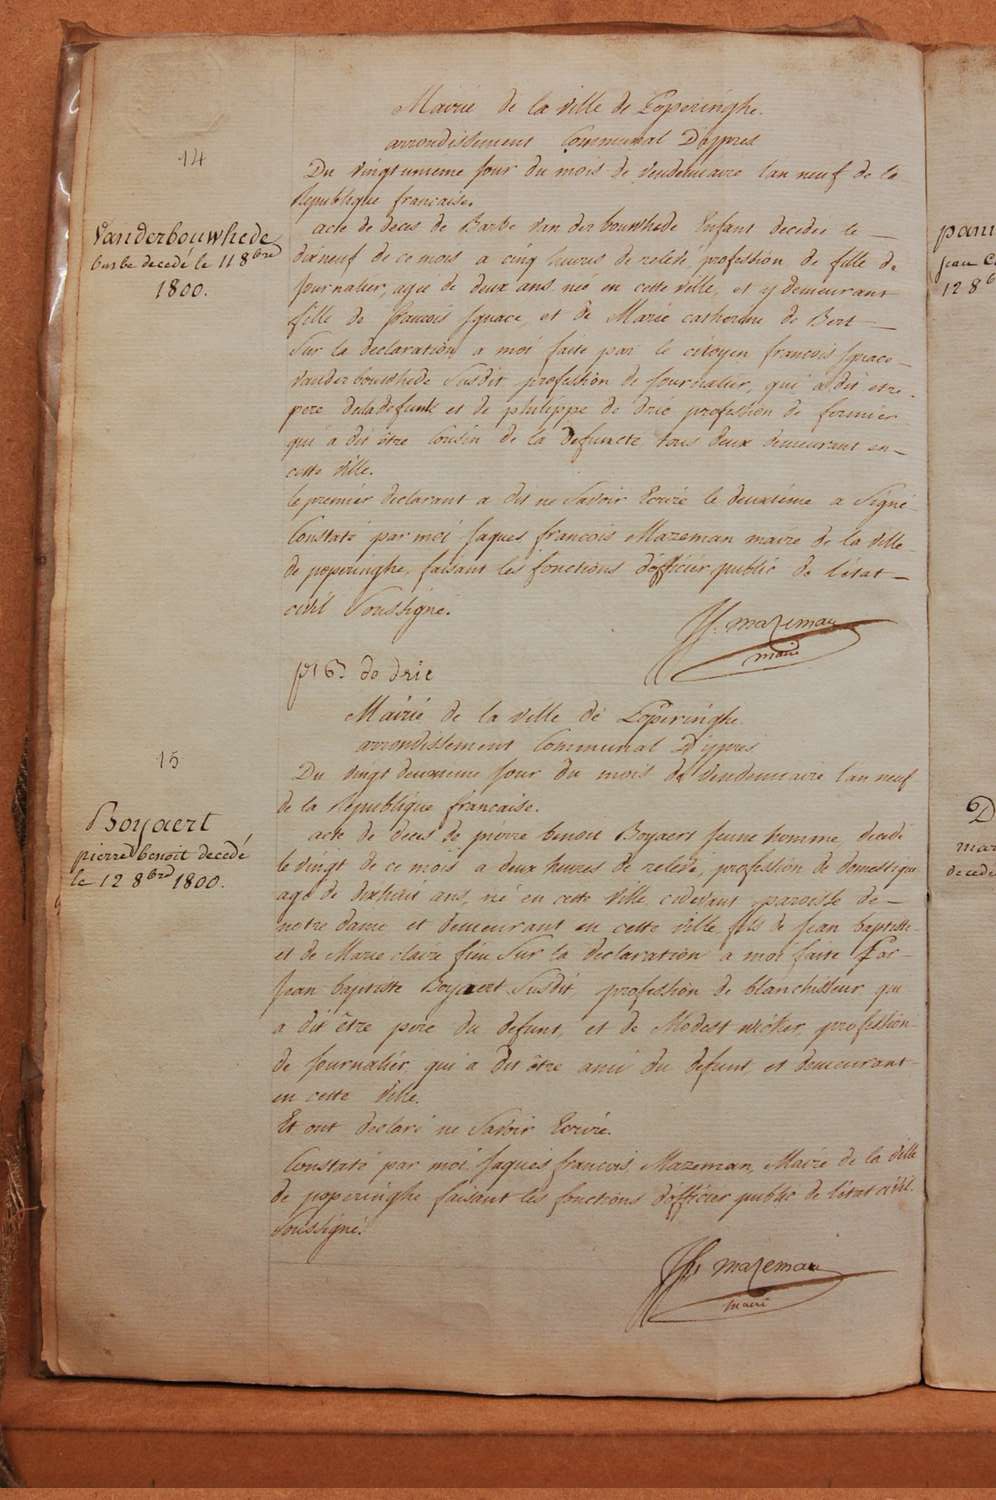 14
Vanderbouwhede
barbe decedé le 11 8bre
1800.
Mairie de la ville de Poperinghe.
arrondissement Communal D'ypres
Du vingtunieme jour du mois de vendemiaire l'an neuf de la
Republique francaise.
acte de deces de Barbe Van der bouwhede Enfant decedée le
dixneuf de ce mois a cinq heures de relevé, profession de fille de
journalier, agée de deux ans née en cette ville, et y demeurant
fille de francois Ignace, et de Marie catherine de Bert
Sur la declaration a moi faite par le citoyen francois Ignace
vanderbouwhede Susdit, profession de journalier, qui a dit etre
pere dela defunte et de philippe de dric profession de fermier
qui a dit être Cousin de la defuncte tous deux demeurant en
cette ville.
le premiér declarant a dit ne Savoir Ecrire le deuxiéme a Signé
Constaté par moi Jaques francois Mazeman maire de la ville
de poperinghe, faisant les fonctions d'officiér public de l'état
civil Soussigné.
Jf. mazeman
maire
de dric
15
Boyaert
pierre benoit decedé
le 12 8bre 1800.
Mairie de la ville de Poperinghe
arrondissement Communal D'ypres
Du vingt deuxieme jour du mois de vendemiaire l'an neuf
de la Republique francaise.
acte de deces de pierre benoit Boyaert Jeune homme, decedé
le vingt de ce mois a deux heures de relevé, profession de domestique
agé de dixhuit ans, né en cette ville, cidevant paroisse de
notre dame et demeurant en cette ville, fils de Jean baptiste
et de Marie claire Sur la declaration a moi faite Par
Jean baptiste Boyaert Susdit, profession de blanchisseur qui
a dit être pere du defunt, et de Modest profession
de journaliér, qui a dit être ami du defunt et demeurant
en cette ville.
Et ont declaré ne Savoir Ecrire.
Constaté par moi Jaques francois Mazeman, Maire de la ville
de poperinghe faisant les fonctions d'officier public de l'état civil
Soussigné.
Jf mazeman
maire
6